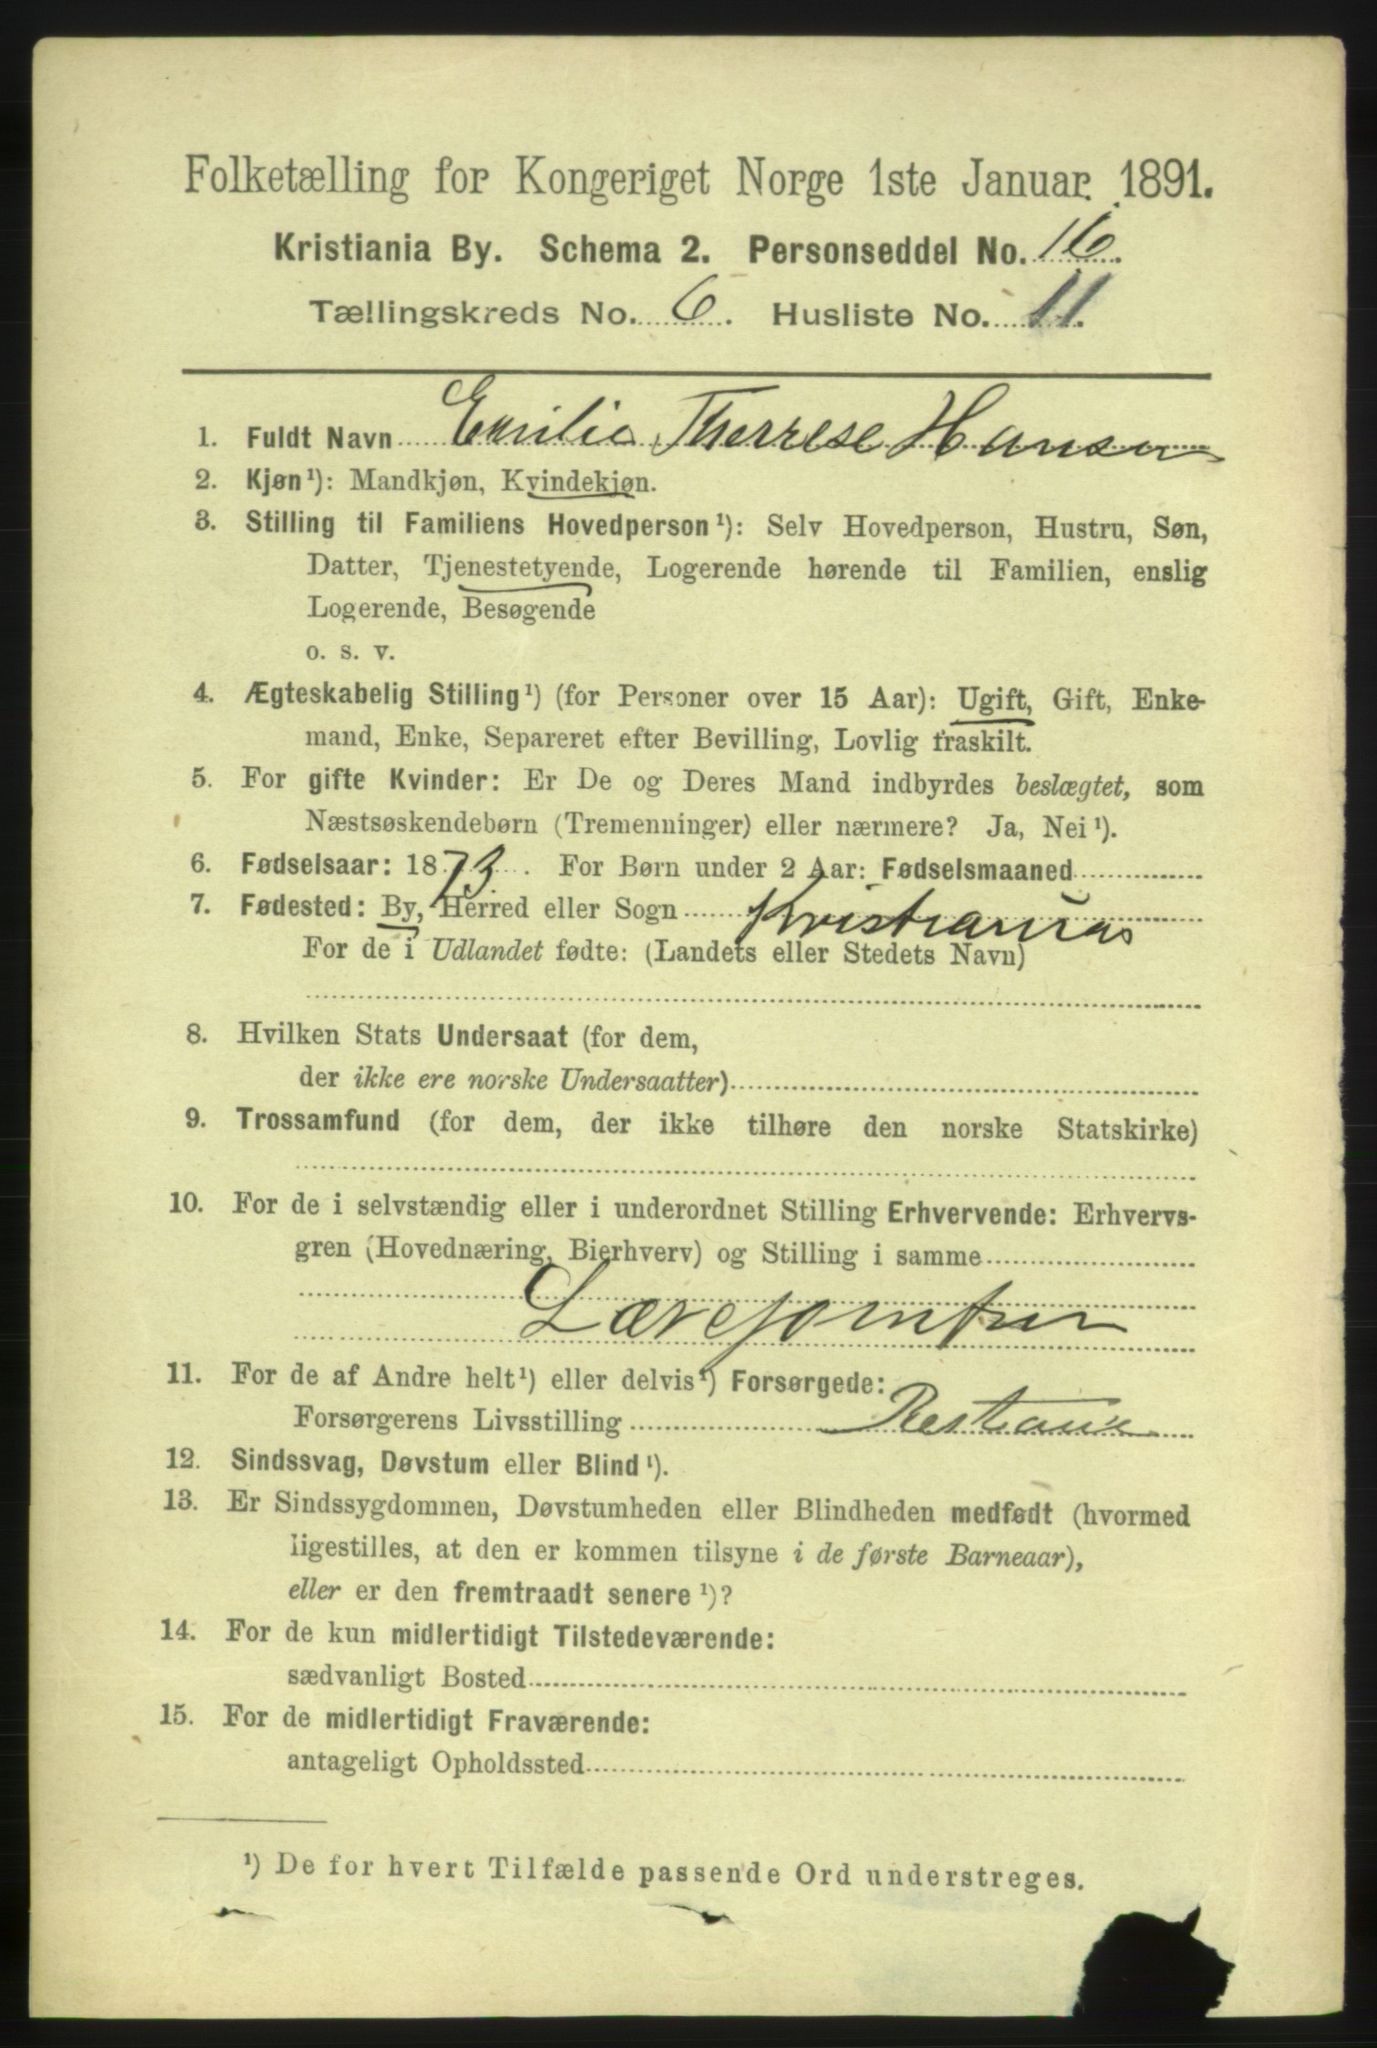 Folketælling for Kongeriget Norge 1ste Januar 1891.
Kristiania By. Schema 2. Personseddel No. 16.
Tællingskreds No. 6. Husliste No. 11.
1. Fuldt Navn Emilie Therrese Hansen
2. Kjøn¹): Mandkjøn, Kvindekjøn.
3. Stilling til Familiens Hovedperson¹): Selv Hovedperson, Hustru, Søn,
Datter, Tjenestetyende, Logerende hørende til Familien, enslig
Logerende, Besøgende
o. s. v.
4. Ægteskabelig Stilling¹) (for Personer over 15 Aar): Ugift, Gift, Enke-
mand, Enke, Separeret efter Bevilling, Lovlig fraskilt.
5. For gifte Kvinder: Er De og Deres Mand indbyrdes beslægtet, som
Næstsøskendebørn (Tremenninger) eller nærmere? Ja, Nei¹).
6. Fødselsaar: 1873. For Børn under 2 Aar: Fødselsmaaned
7. Fødested: By, Herred eller Sogn Kristiania
For de i Udlandet fødte: (Landets eller Stedets Navn)
8. Hvilken Stats Undersaat (for dem,
der ikke ere norske Undersaatter)
9. Trossamfund (for dem, der ikke tilhøre den norske Statskirke)
10. For de i selvstændig eller i underordnet Stilling Erhvervende: Erhvervs-
gren (Hovednæring, Bierhverv) og Stilling i samme
Lærejomfru
11. For de af Andre helt¹) eller delvis¹) Forsørgede:
Forsørgerens Livsstilling
12. Sindssvag, Døvstum eller Blind¹).
13. Er Sindssygdommen, Døvstumheden eller Blindheden medfødt (hvormed
ligestilles, at den er kommen tilsyne i de første Barneaar),
eller er den fremtraadt senere¹)?
14. For de kun midlertidigt Tilstedeværende:
sædvanligt Bosted
15. For de midlertidigt Fraværende:
antageligt Opholdssted
¹) De for hvert Tilfælde passende Ord understreges.